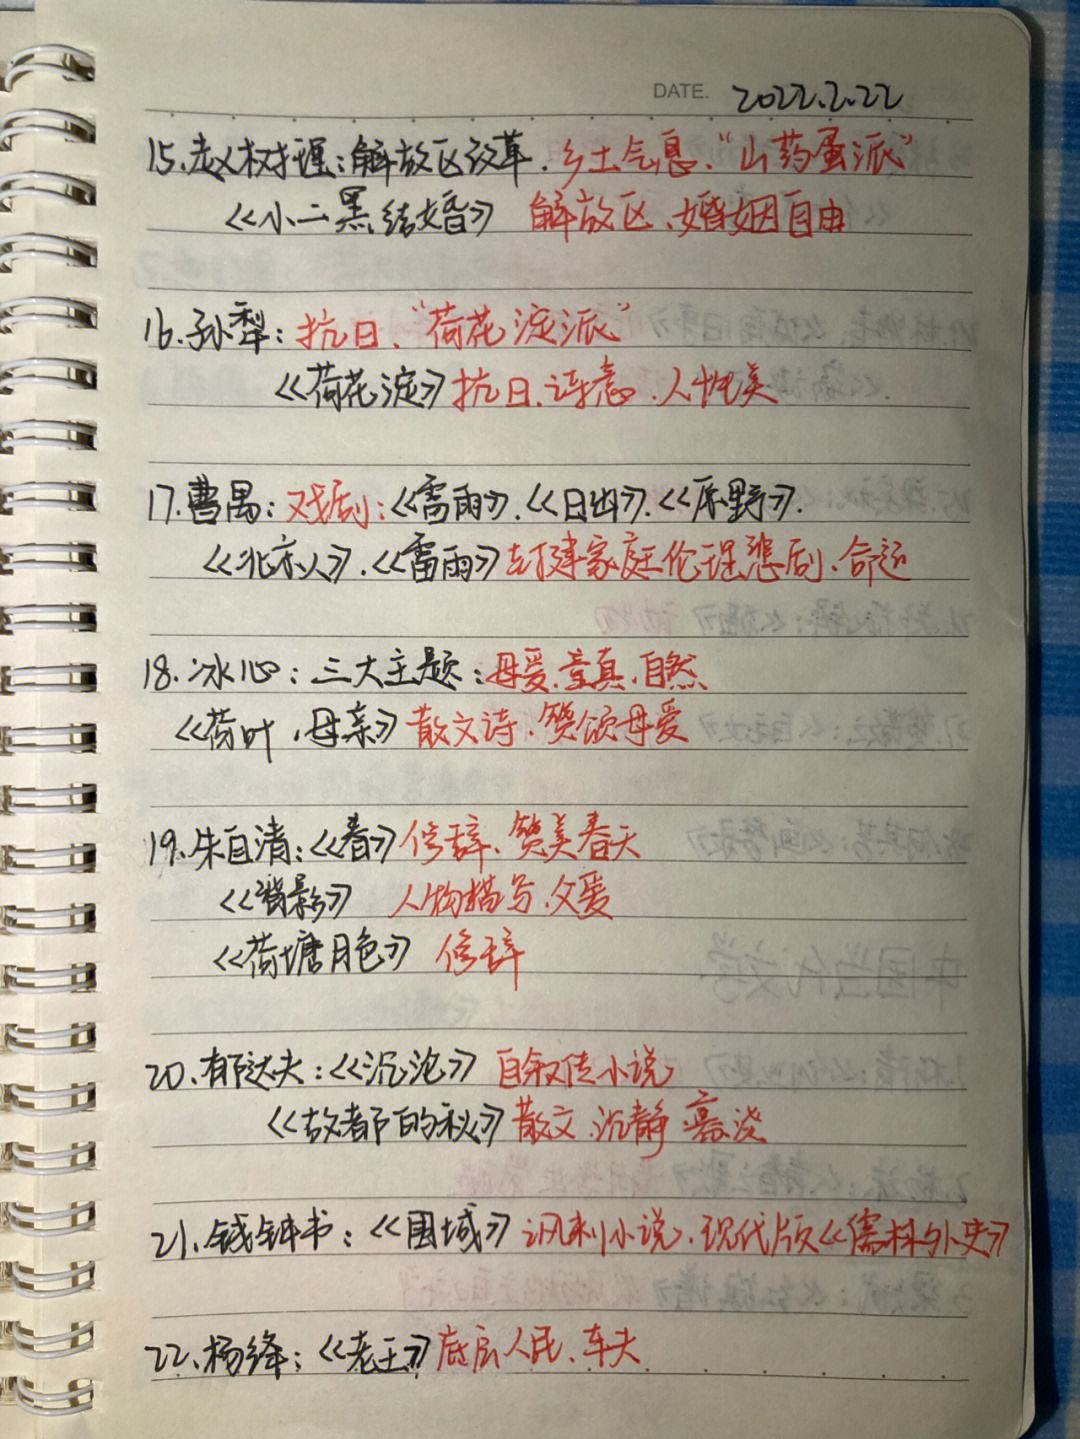 DATE. 2022.2.22
15.赵树理:解放区改革.乡土气息."山药蛋派"
《小二黑结婚》 解放区、婚姻自由
16.孙犁:抗日、"荷花淀派"
《荷花淀》抗日.诗意.人性美
17.曹禺:戏剧:《雷雨》.《日出》.《原野》.
《北京人》.《雷雨》封建家庭伦理悲剧、命运
18.冰心:三大主题:母爱.童真.自然
《荷叶·母亲》散文诗.赞颂母爱
19.朱自清:《春》修辞、赞美春天
《背影》 人物描写.父爱
《荷塘月色》 修辞
20.郁达夫:《沉沦》 自叙传小说
《故都的秋》散文.沉静.寡淡
21.钱钟书:《围城》讽刺小说.现代版《儒林外史》
22.杨绛:《老王》底层人民、车夫